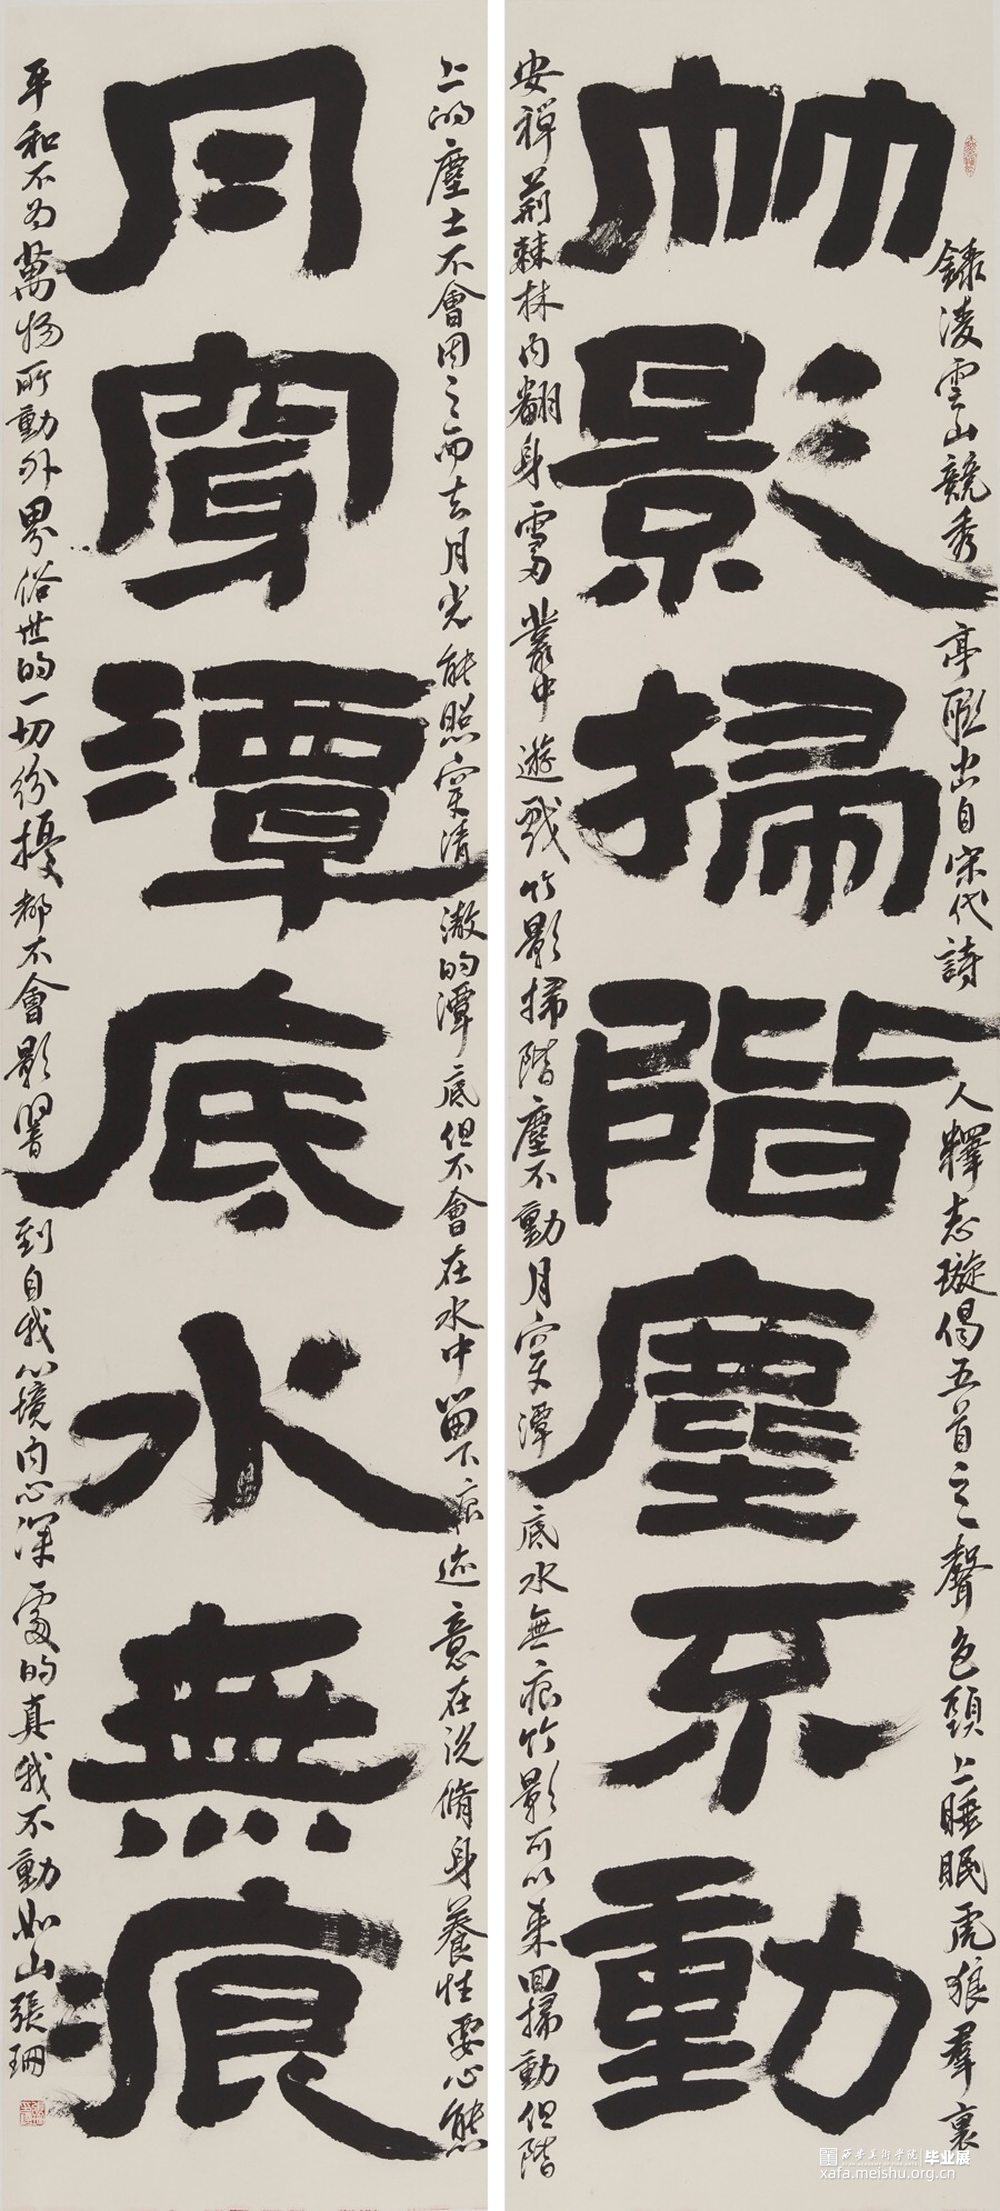 竹影掃階塵不動
月穿潭底水無痕
錄凌雲山競秀亭聯出自宋代詩人釋志璇偈五首之聲色頭上睡眠虎狼羣裏
安禪荊棘林內翻身雪刃叢中遊戲竹影掃階塵不動月穿潭底水無痕竹影可以來回掃動但階
上的塵土不會因之而去月光能照穿清澈的潭底但不會在水中留下痕迹意在说脩身養性要心態
平和不为萬物所動外界俗世的一切紛擾都不會影響到自我心境内心深處的真我不動如山張珊
西安美術學院 毕业展
xafa.meishu.org.cn